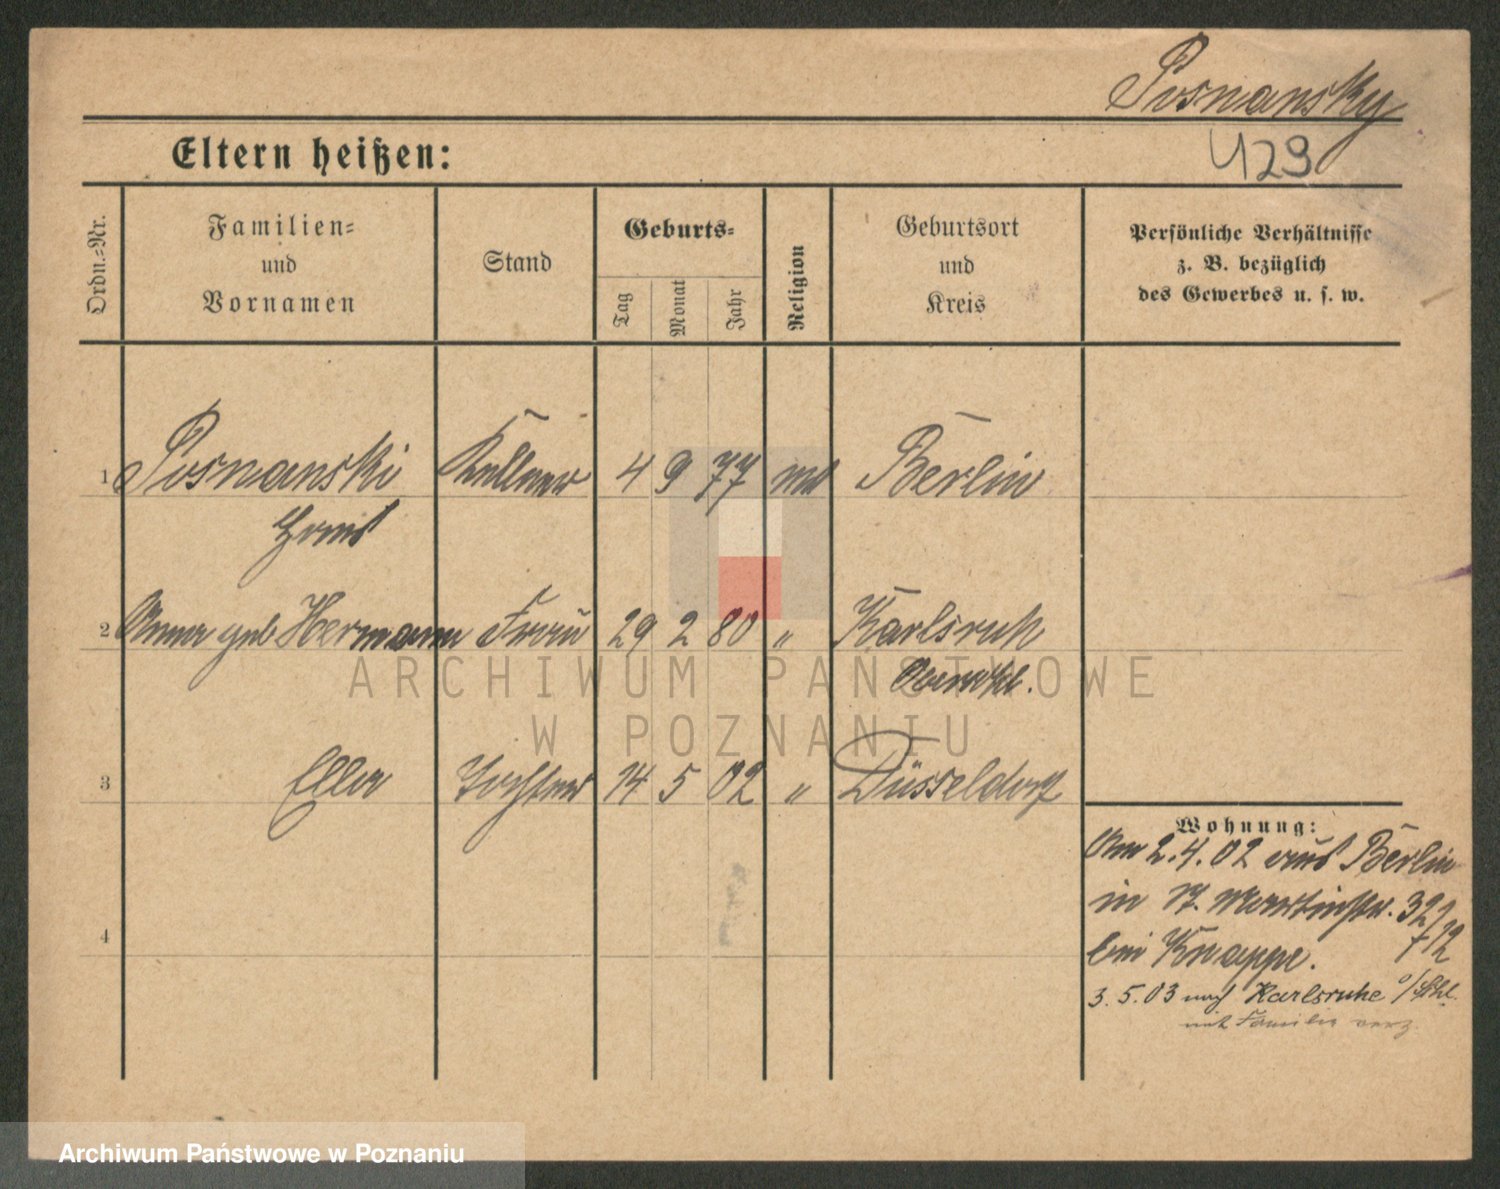 Posnansky
429
Eltern heißen:
Ordn.-Nr.
Familien-
und
Vornamen
Stand
Geburts-
Tag
Monat
Jahr
Religion
Geburtsort
und
Kreis
Persönliche Verhältnisse
z. B. bezüglich
des Gewerbes u. s. w.
1 Posnanski Kellner 4 9 77 Berlin
Ernst
2 Anna geb Hermann Frau 29 2 80 " Karlsruh
Oberschl.
3 Ella Tochter 14 5 02 " Düsseldorf
4
Wohnung:
Am 2.4.02 aus Berlin
in St. Martinstr. 32
bei Knappe.
3.5.03 nach Karlsruhe o/Schl.
mit Familie verz
ARCHIWUM PAŃSTWOWE
W POZNANIU
Archiwum Państwowe w Poznaniu